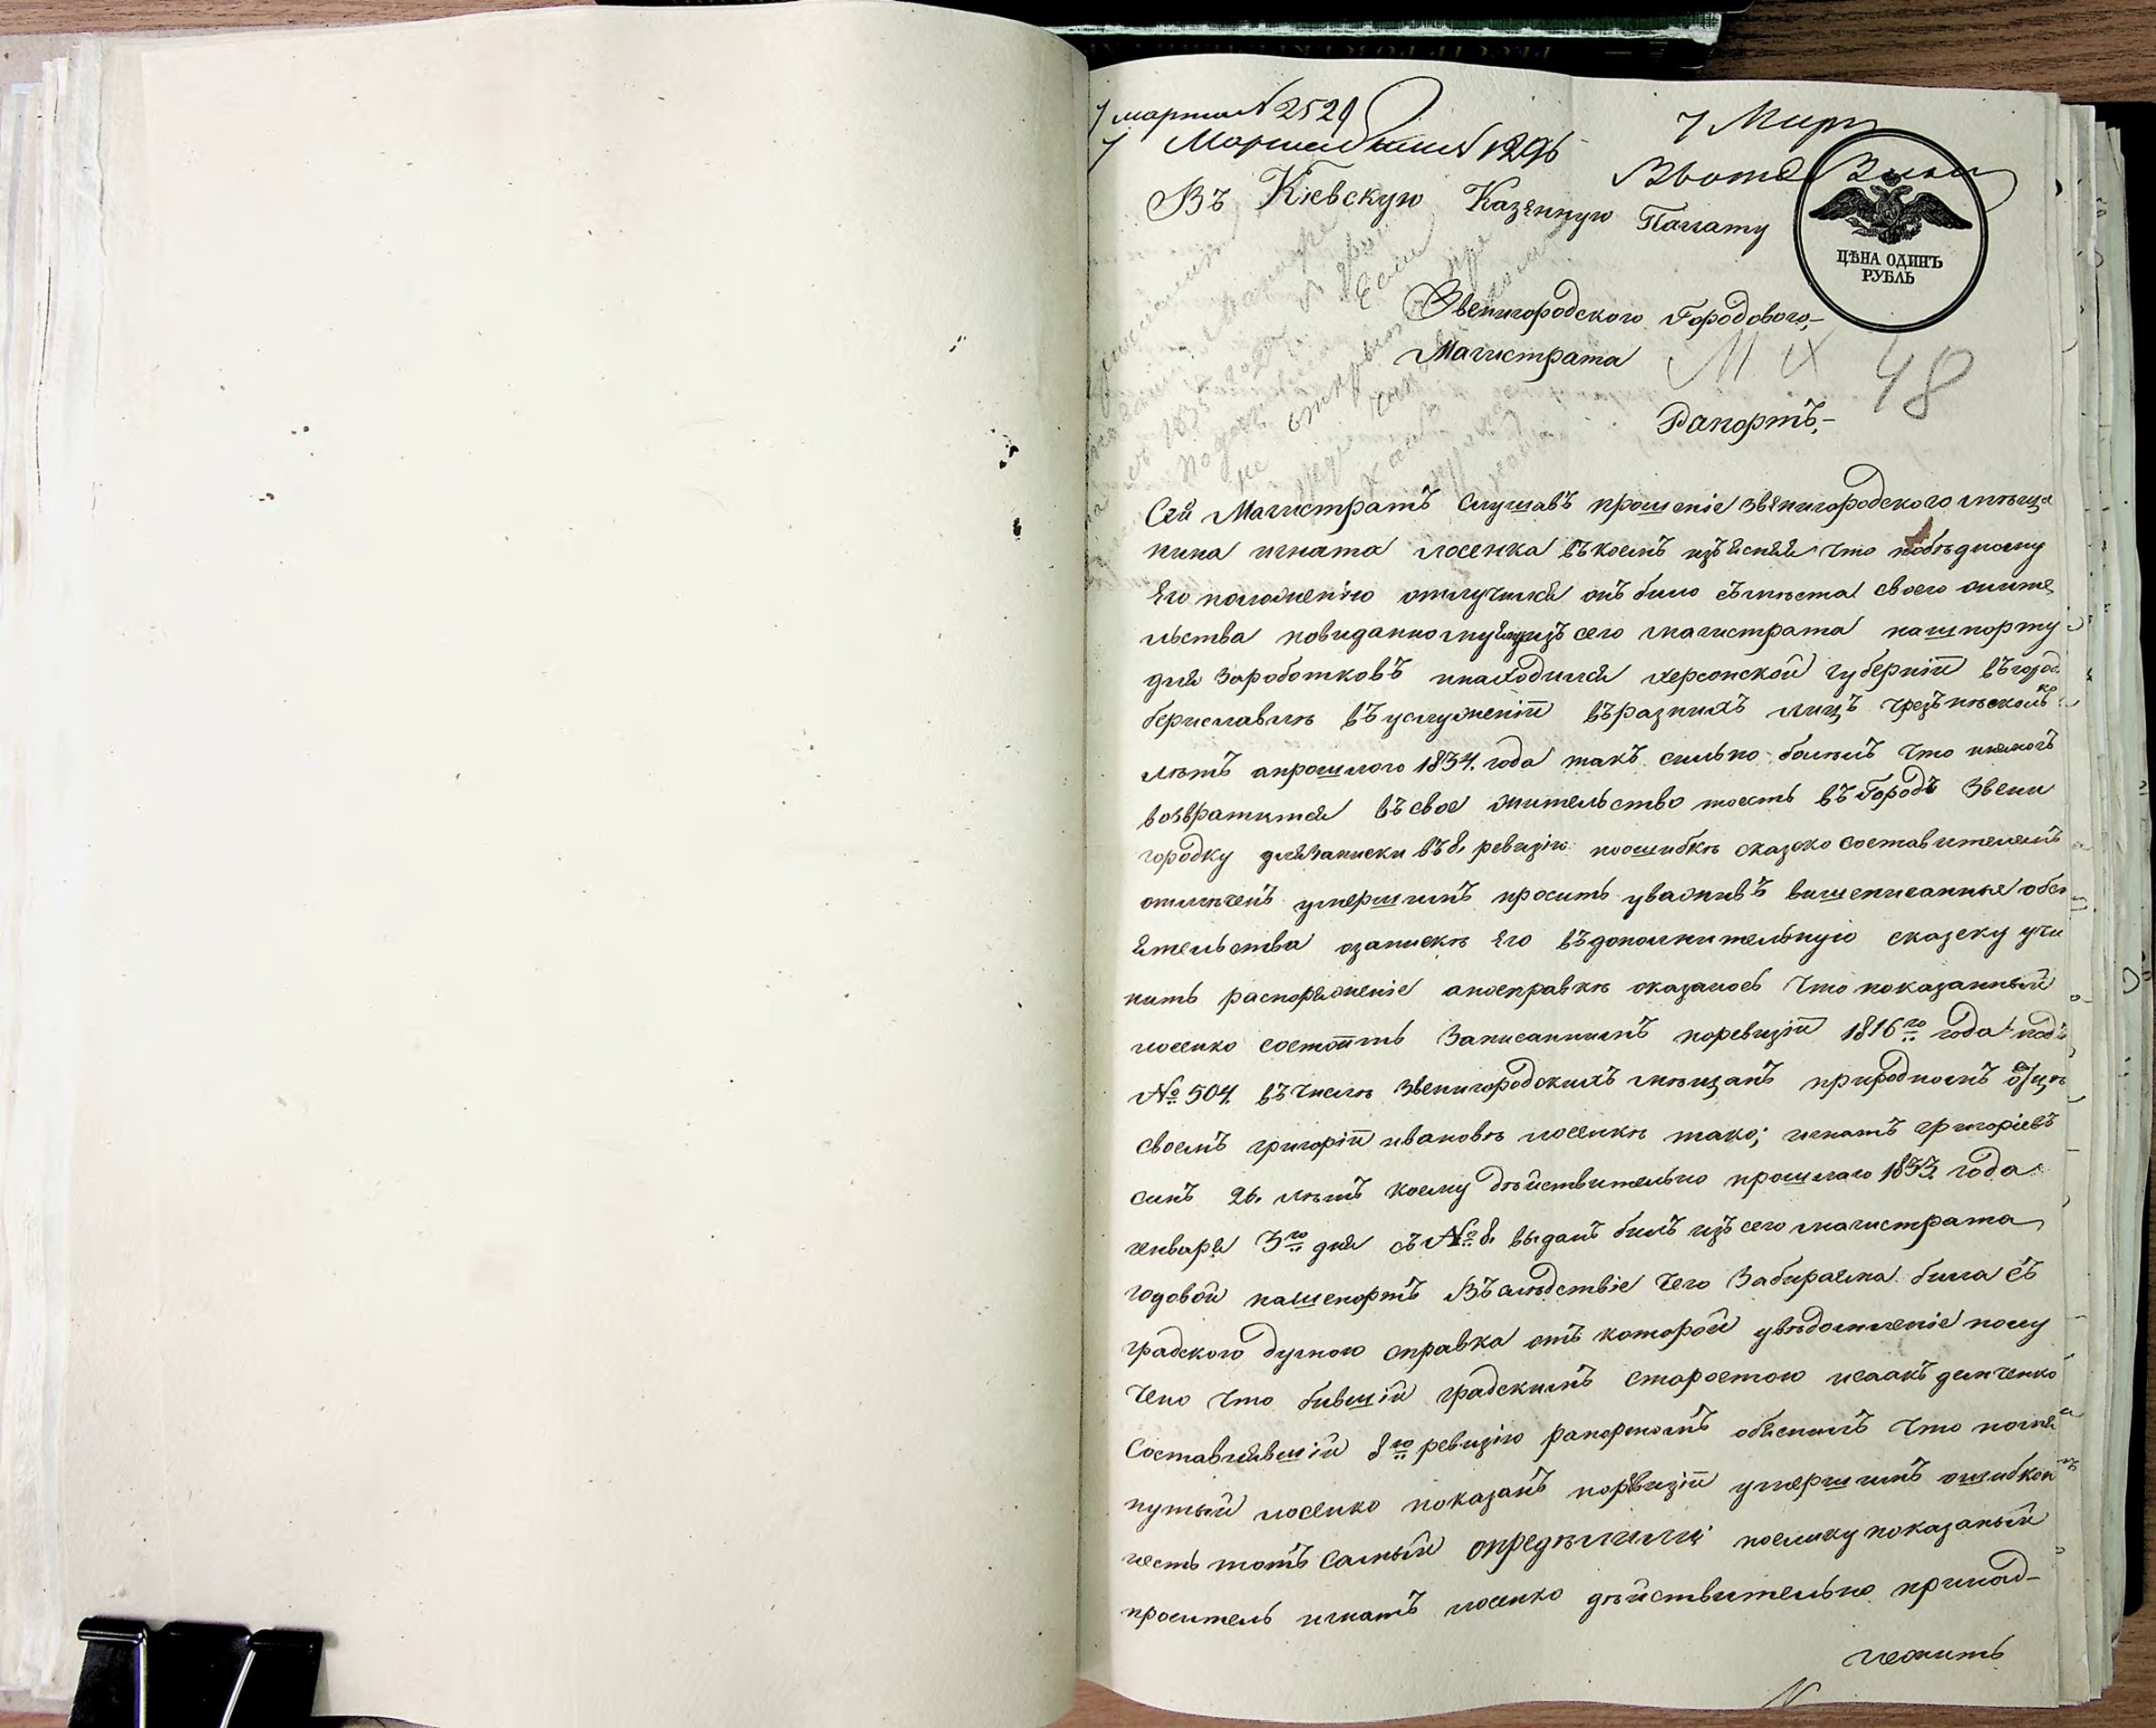 7 марта № 2529
7 Марта № 1296
7 Мар
Въ Кіевскую Казенную Палату
ЦѢНА ОДИНЪ
РУБЛЬ
Звенигородского Городового,-
Магистрата
48
Рапортъ,-
Сей Магистратъ слушавъ прошеніе звѣнигородского мѣща
нина игната лосенка въ коемъ изъясняя что побѣдному
Его положенію отлучился онъ било съмѣста своего жите
льства повиданному ему изъ сего магистрата пашпорту
для Заработковъ инаходился херсонской губерніи въгород
бериславлѣ въуслуженіи въразнихъ лицъ чрезъ нѣсколько
лѣтъ апрошлого 1834. года такъ сильно болѣлъ что немогъ
возвратится въсвое жительство тоесть въ Городъ Звени
городку длязаписки въ 8. ревизію поошибкѣ сказко составителемъ
отмѣченъ умершимъ просить уваживъ вишеписанные обсто
ятельства озапискѣ Его въдополнительную сказску учи
нить распоряженіе апосправкѣ оказалось что показанный
лосенко состоитъ Записаннимъ поревизіи 1816го года подъ
№ 504. въчислѣ Звенигородскихъ мѣщанъ природномъ отцѣ
своемъ григоріи ивановѣ лосенкѣ тако; игнатъ григоріевъ
синъ 26. лѣтъ коему дѣйствительно прошлаго 1833. года
генваря 3го дня съ № 8. выданъ билъ изъ сего магистрата
годовой пашепортъ Въслѣдствіе чего Забираема била съ
градского думою справка отъ которой увѣдомленіе полу
чено что бившій градскимъ старостою исаакъ демченко
Составлявшій 8ю ревизію рапортомъ обяснилъ что помя
нутый лосенко показанъ поревизіи умершимъ ошибкою
иесть тотъ самый опредѣлили: поелику показаный
проситель игнатъ лосенко дѣйствительно принад-
лежитъ